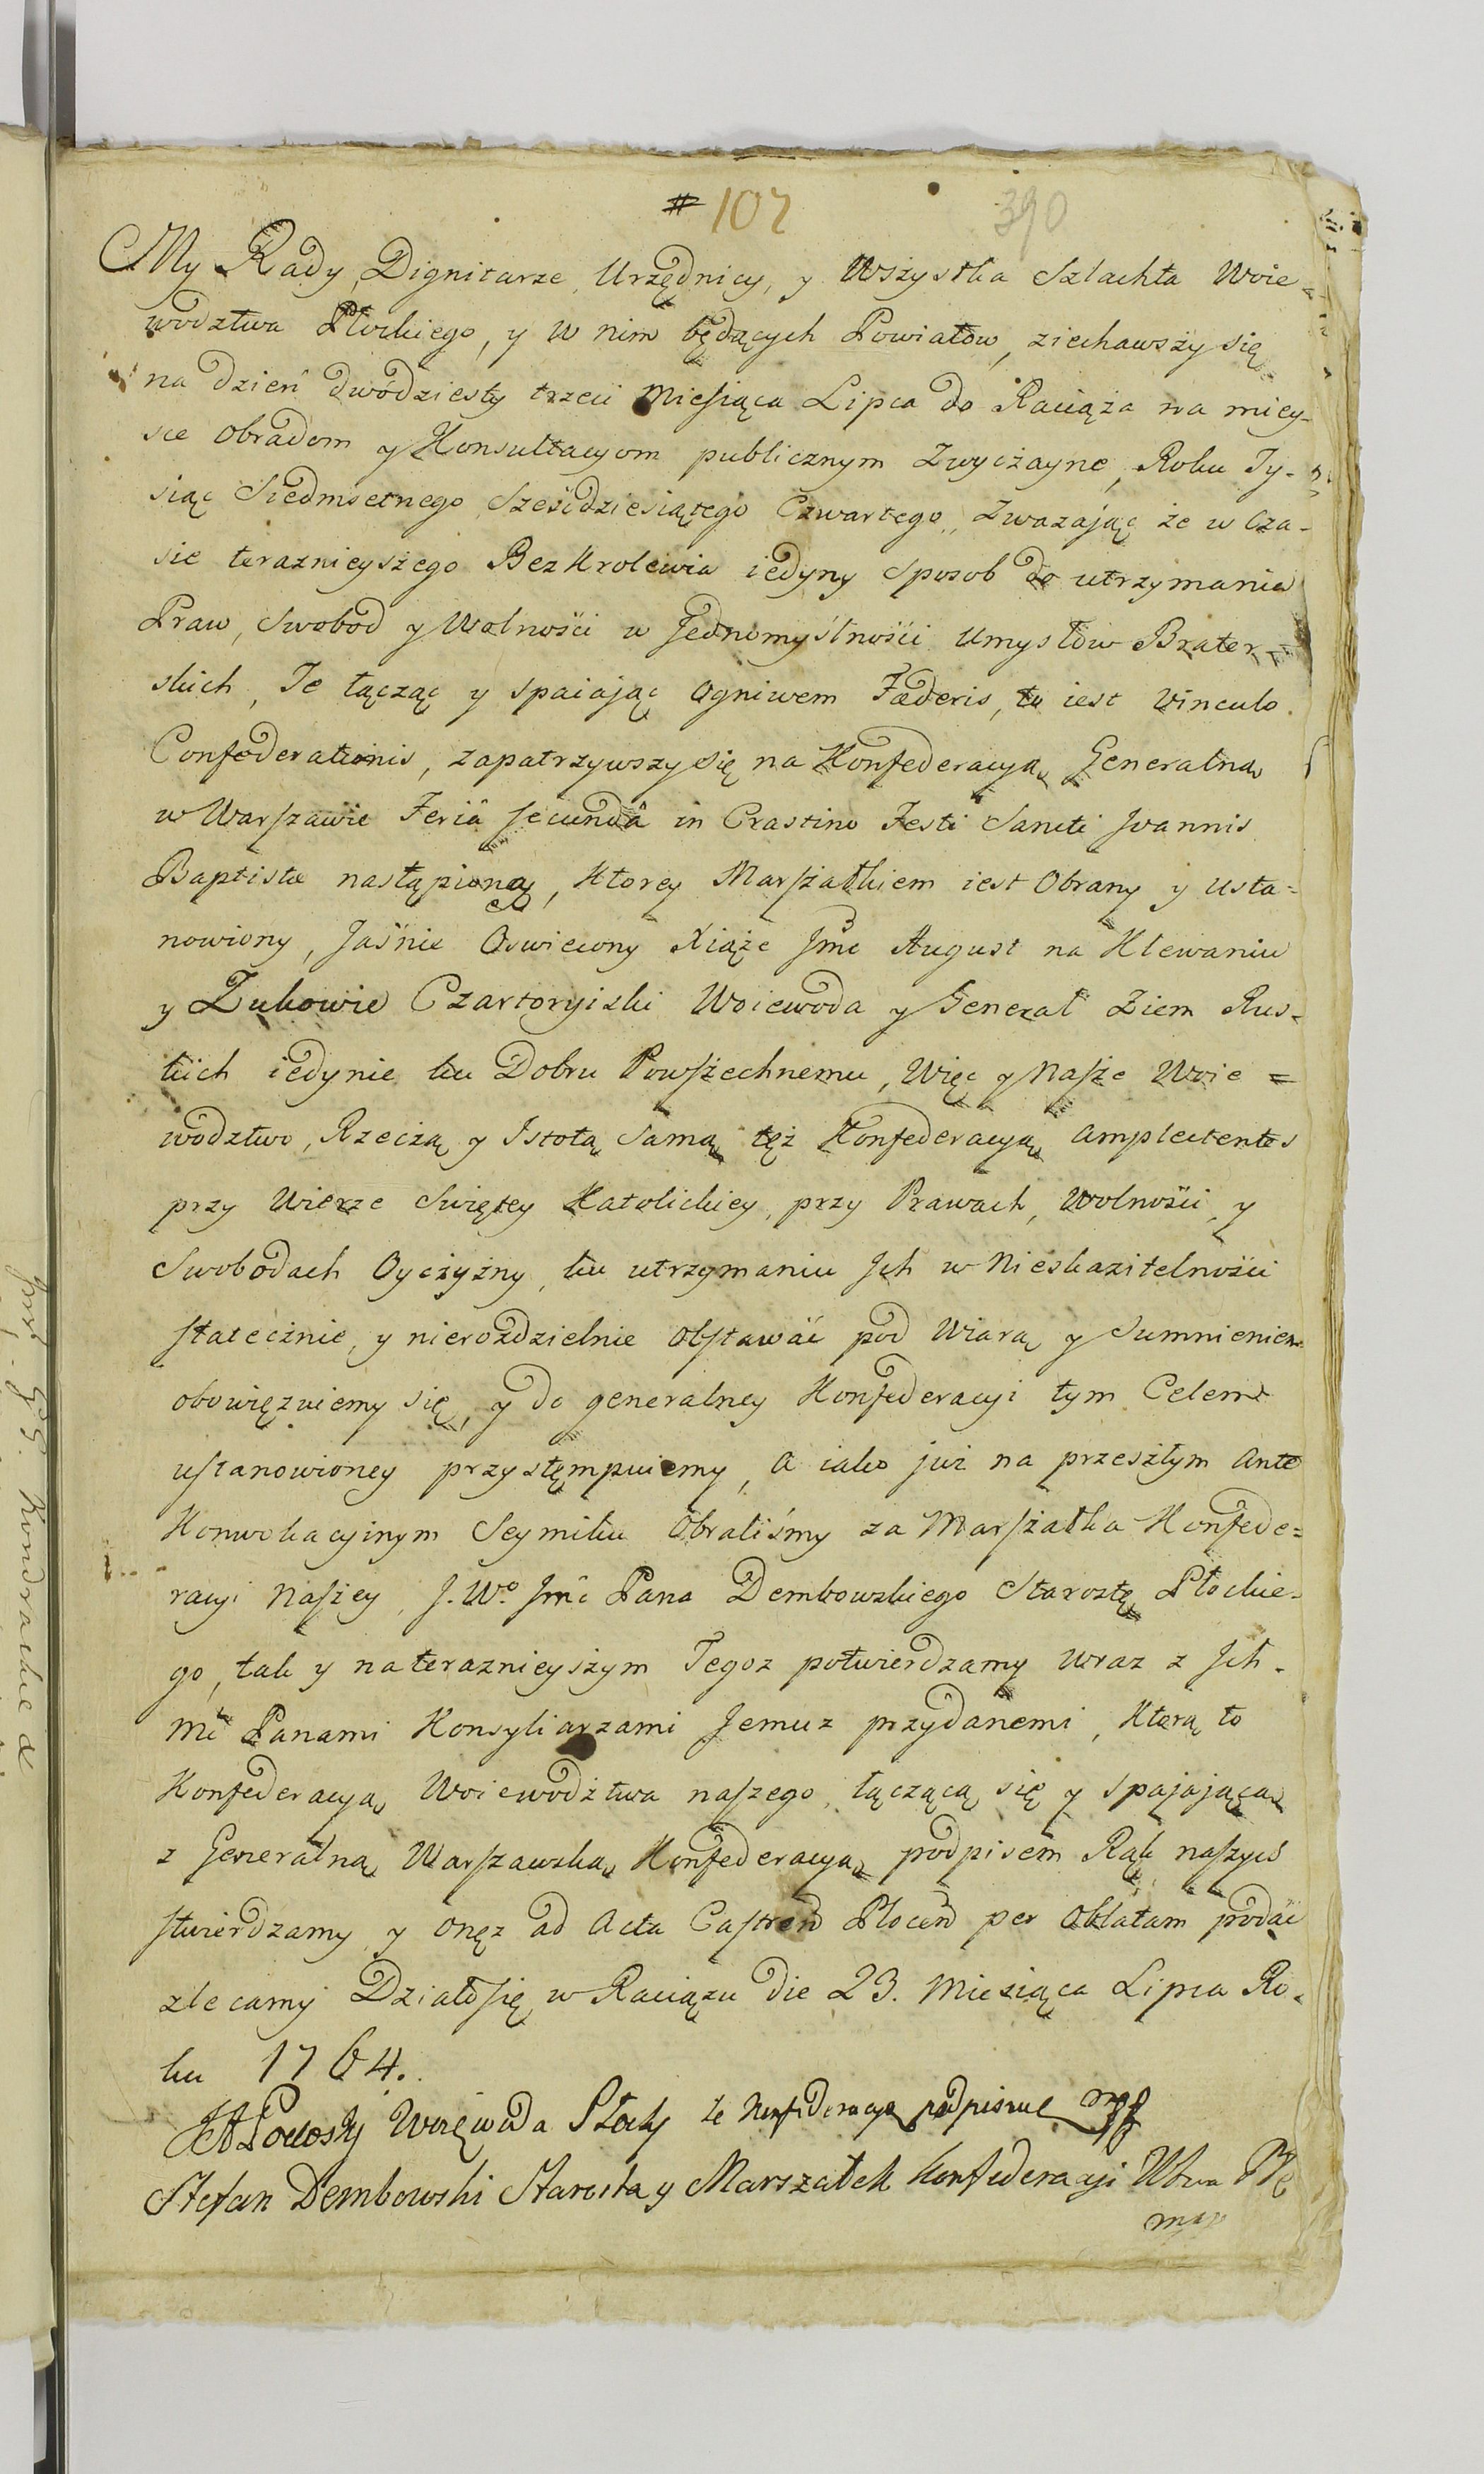 # 102 390
My Rady, Dignitarze, Urzędnicy, y Wszystka Szlachta Woie-
wodztwa Płockiego, y w nim będących Powiatow, ziechawszy się
na dzień dwódziesty trzeci Miesiąca Lipca do Raciąża na miey-
sce obradom y Konsultacyom publicznym Zwyczayne, Roku Ty-
siąc Siedmsetnego Sześćdziesiątego Czwartego, Zwazając że w Cza-
sie teraznieyszego Bezkrolewia iedyny Sposob do utrzymania
Praw, Swobod y Wolności w Jednomyślności Umysłów Brater-
skich, Je łącząc y spaiając Ogniwem Fæderis, to iest Vinculo
Confœderationis, zapatrzywszy się na Konfederacyą Generalną
w Warszawie Feriâ secundâ in Crastino Festi Sancti Joannis
Baptistæ nastąpioną, Ktorey Marszałkiem iest Obrany y Usta-
nowiony, Jaśnie Oswiecony Xiąże Jmć August na Klewaniu
y Żukowie Czartoryiski Woiewoda y Generał Ziem Rus-
kich iedynie ku Dobru Powszechnemu, Więc y Nasze Woie=
wodztwo, Rzeczą y Istotą Samą tęż Konfederacyą amplectentes
przy Wierze Swiętey Katolickiey, przy Prawach, Wolności, y
Swobodach Oyczyzny, ku utrzymaniu Ich w Nieskazitelności
statecznie, y nierozdzielnie obstawać pod Wiarą y Sumnieniem
obowięzuiemy się, y do generalney Konfederacyi tym Celem
ustanowioney przystępuiemy, a iako już na przeszłym Ante
Konwokacyinym Seymiku Obraliśmy za Marszałka Konfede=
racyi Naszey, J.Wo. Jmć Pana Dembowskiego Starostę Płockie-
go, tak y na teraznieyszym Tegoz potwierdzamy wraz z Ich-
Mć Panami Konsyliarzami Jemuz przydanemi, Ktorą to
Konfederacyą Woiewodztwa naszego, łączącą się y spajającą
z Generalną Warszawską Konfederacyą podpisem Rąk naszych
stwierdzamy y onęz ad Acta Castren Plocen per Oblatam podać
zlecamy Działo się w Raciązu Die 23. Miesiąca Lipca Ro-
ku 1764.
Podoski Woiewoda Płocky te Konfideracyą podpisuie mp
Stefan Dembowski Starosta y Marszałek Konfederacyi Wtwa Płę
mp